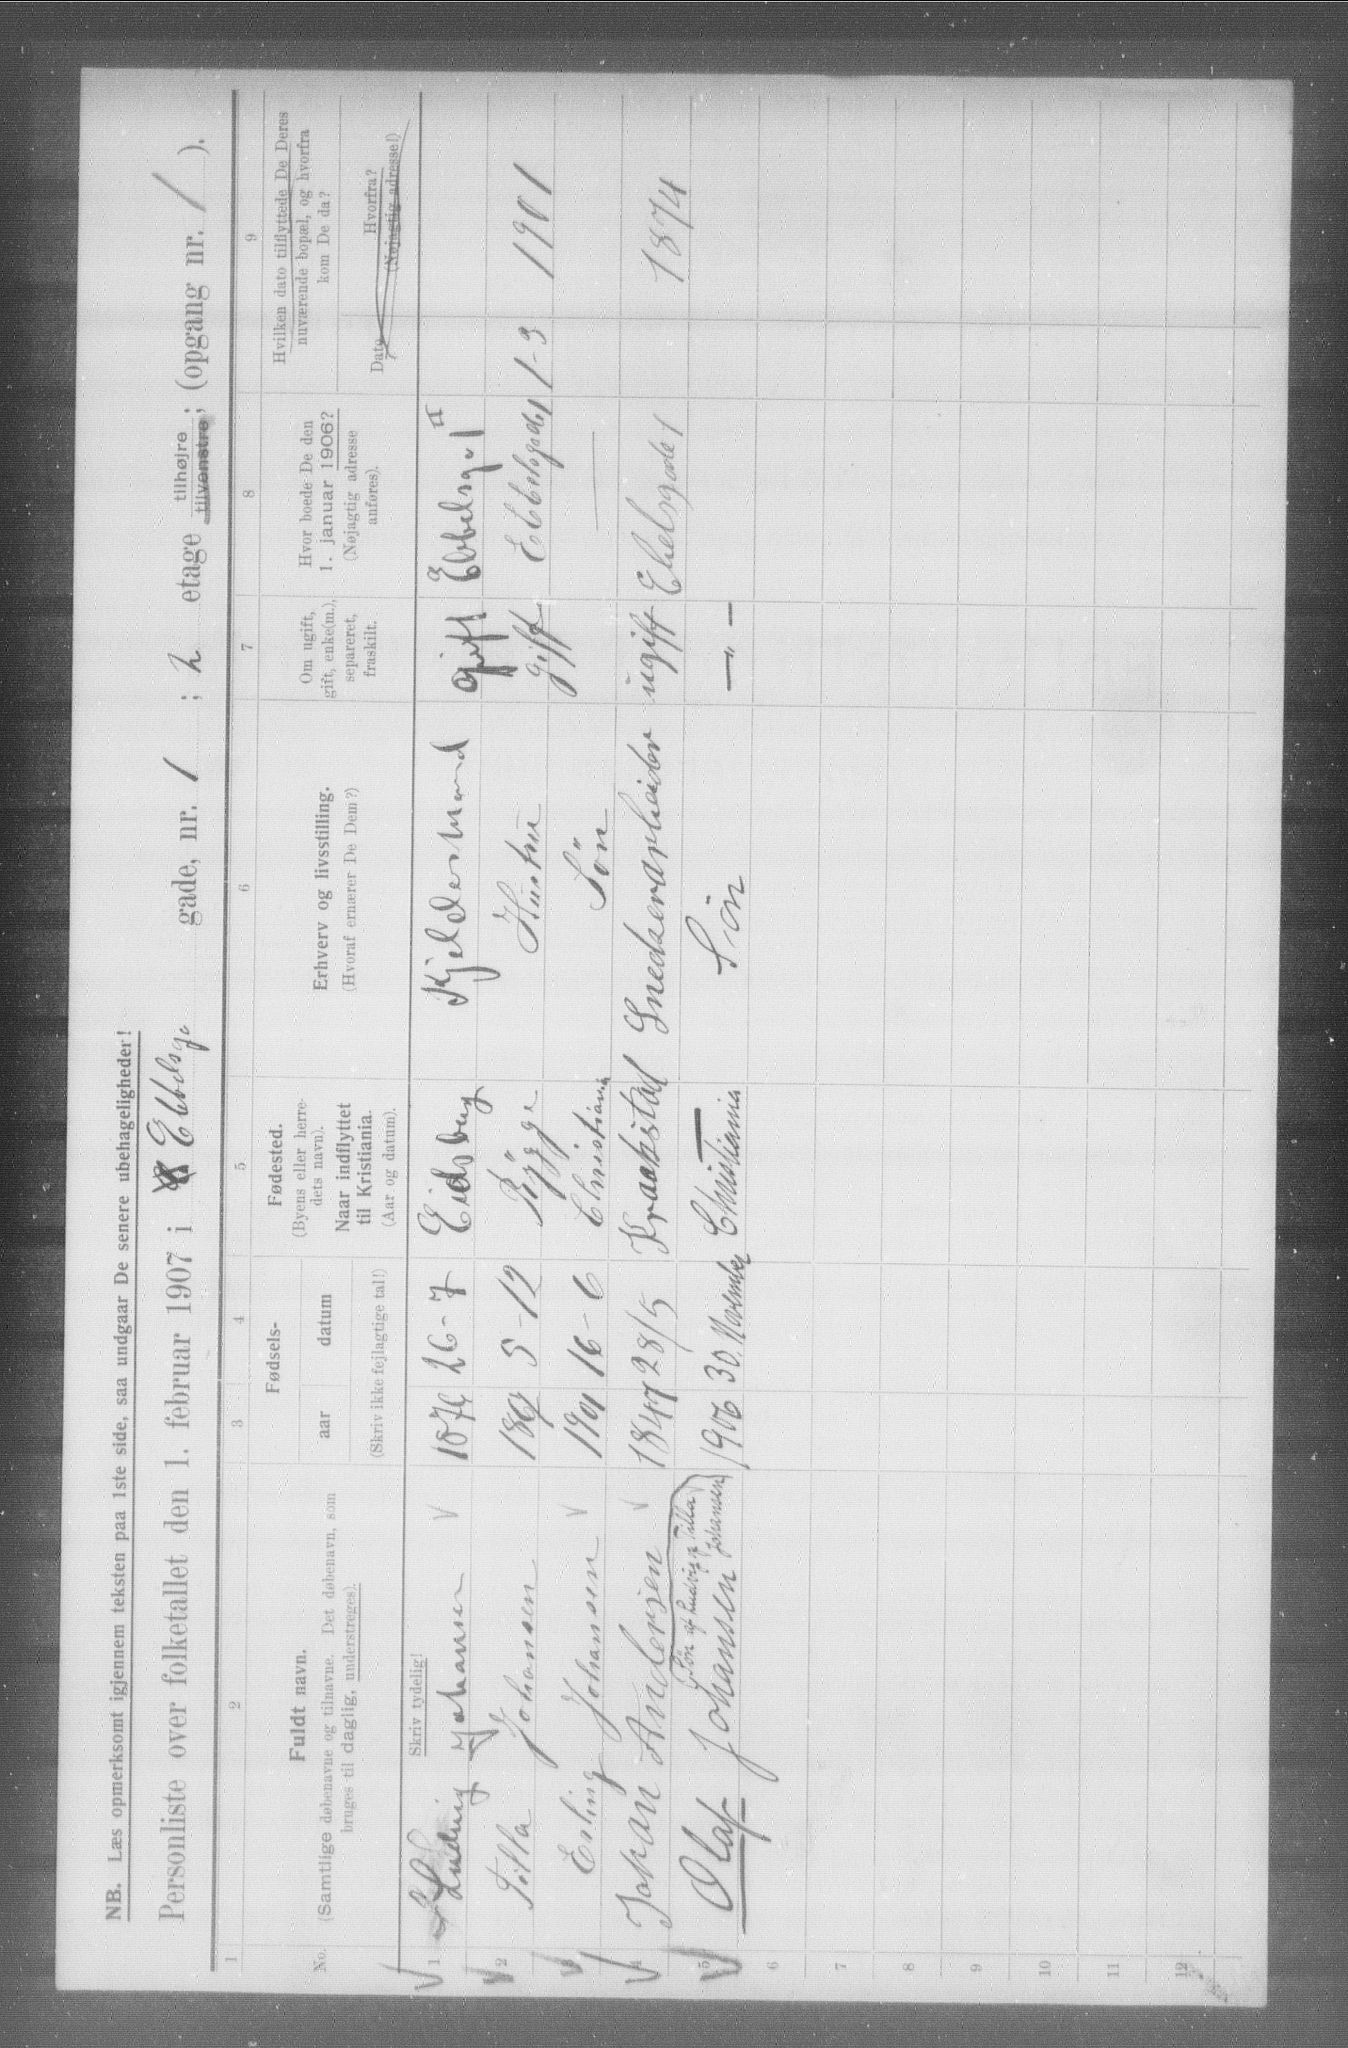 NB. Læs opmerksomt igjennem teksten paa 1ste side, saa undgaar De senere ubehageligheder!
Personliste over folketallet den 1. februar 1907 i Ebbelsge gade, nr. 1 ; 2 etage tilhøjre tilvenstre; (opgang nr. / ).
1 2 3 4 5 6 7 8 9
No. Fuldt navn. (Samtlige døbenavne og tilnavne. Det døbenavn, som bruges til daglig, understreges). Fødsels- aar datum (Skriv ikke fejlagtige tal!) Fødested. (Byens eller herredets navn). Naar indflyttet til Kristiania. (Aar og datum). Erhverv og livsstilling. (Hvoraf ernærer De Dem?) Om ugift, gift, enke(m.), separeret, fraskilt. Hvor boede De den 1. januar 1906? (Nøjagtig adresse anføres). Hvilken dato tilflyttede De Deres nuværende bopæl, og hvorfra kom De da? Dato Hvorfra? (Nøjagtig adresse!)
Skriv tydelig!
1 Ludvig Johansen 26-7 Eidsberg Kjeldermand gift Ebbelsge 1 II
2 Tilla Johansen 3-12 Rygge Hustru gift Ebbelsgade 1 1-3 1901
3 Erling Johansen 1901 16-6 Christiania Sön —
4 Johan Andersen 1847 28/5 Kraakstad Snedkerarbeider ugift Ebelsgade 1 1874
5 Olaf Johansen (Sön af Ludvig og Tilla Johansen) 1906 30. November Christiania Sön — " —
6
7
8
9
10
11
12